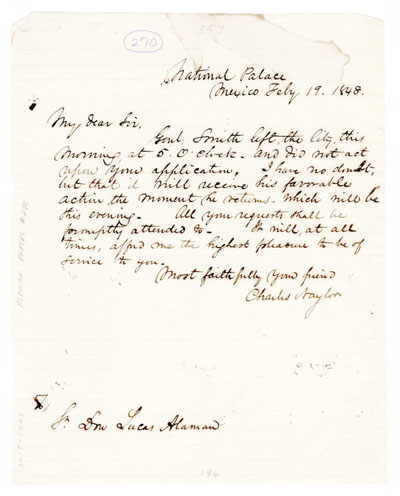 270
357
National Palace
Mexico Feby 19. 1848.
My dear Sir,
Genl. Smith left, the City, this
morning, at 5. O'clock - and did not act
upon your application. I have no doubt,
but that it will receive his favorable
action the moment he returns - which will be
this evening. All your requests shall be
promptly attended to - It will, at all
times, afford me the highest pleasure to be of
service to you -
Most faithfully your friend
Charles Naylor
To
Sr. Don Lucas Alaman
196